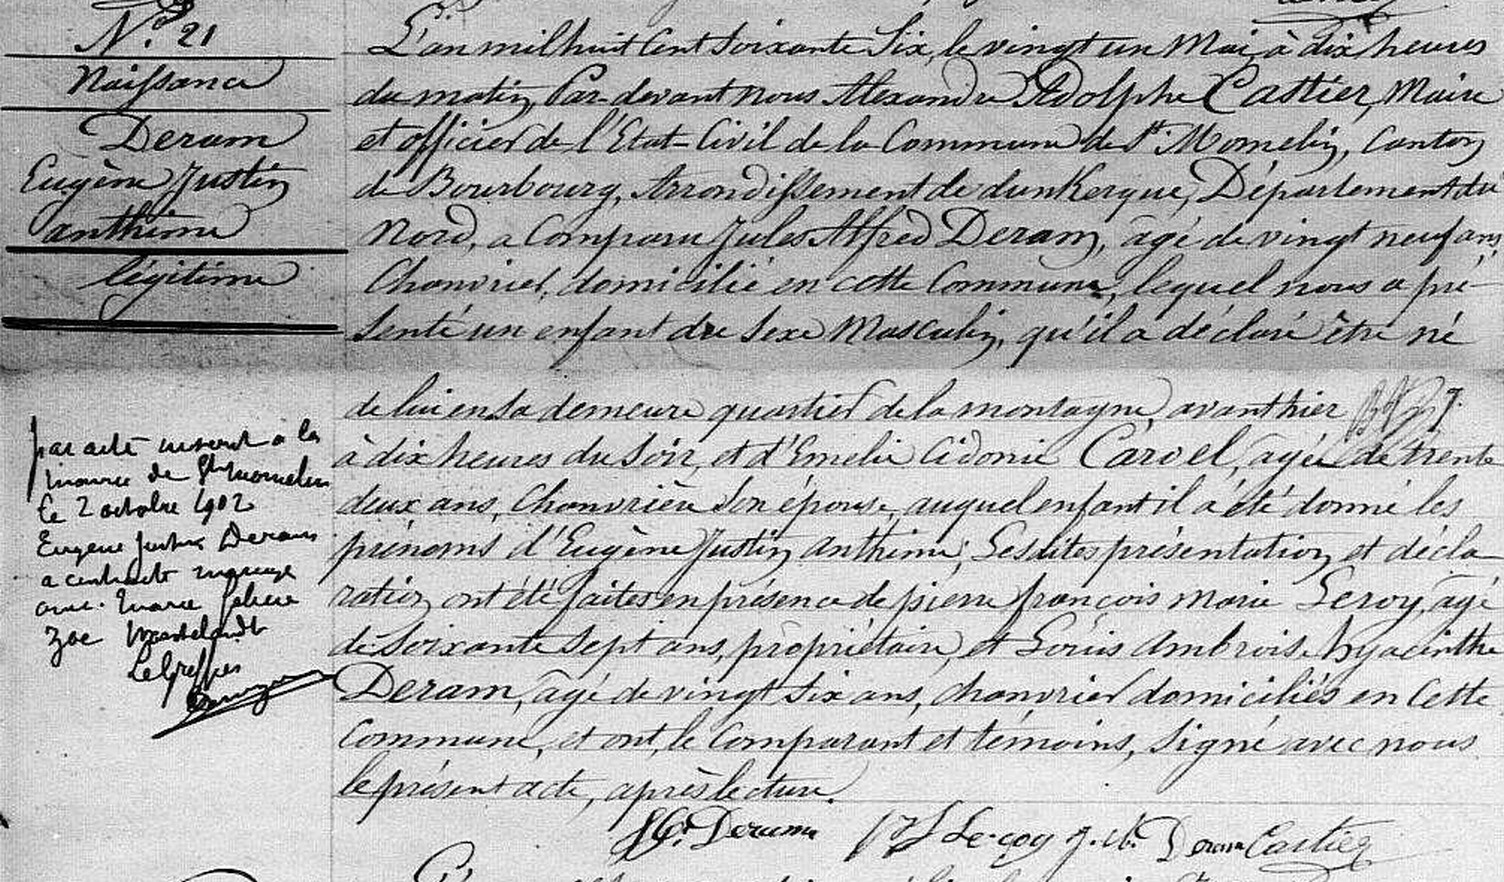 N.° 21
Naissance
Deram
Eugène Justin
anthime
légitime
L'an mil huit Cent Soixante Six, le vingt un Mai, à dix heures
du matin, Par-devant nous Alexandre Adolphe Castier, Maire
et officier de l'Etat-Civil de la Commune de St. Momelin, Canton
de Bourbourg, Arrondissement de dunkerque, Département du
Nord, a Comparu Jules Alfred Deram, âgé de vingt neuf ans,
Chanvrier, domicilié en cette Commune, lequel nous a pré-
senté un enfant du Sexe Masculin, qu'il a déclaré être né
de lui en sa demeure quartier de la montagne, avanthier
à dix heures du Soir, et d'Emelie Cidonie Carvel, agée de trente
deux ans, Chanvrière son épouse, auquel enfant il a été donné les
prénoms d'Eugène Justin anthime; Lesdites présentation et décla
ration ont été faites en présence de pierre françois Marie Leroy, âgé
de Soixante Sept ans, propriétaire, et Louis Ambroise hyacinthe
Deram, âgé de vingt Six ans, chanvrier domiciliés en Cette
Commune, et ont, le Comparant et témoins, Signé avec nous
le présent acte, après lecture.
par acte inscrit à la
mairie de St Momelin
le 2 octobre 1902
Eugène Justin Deram
a contracté mariage
avec Marie
Zoé
Le Greffier
Deram Leroy Deram Castier